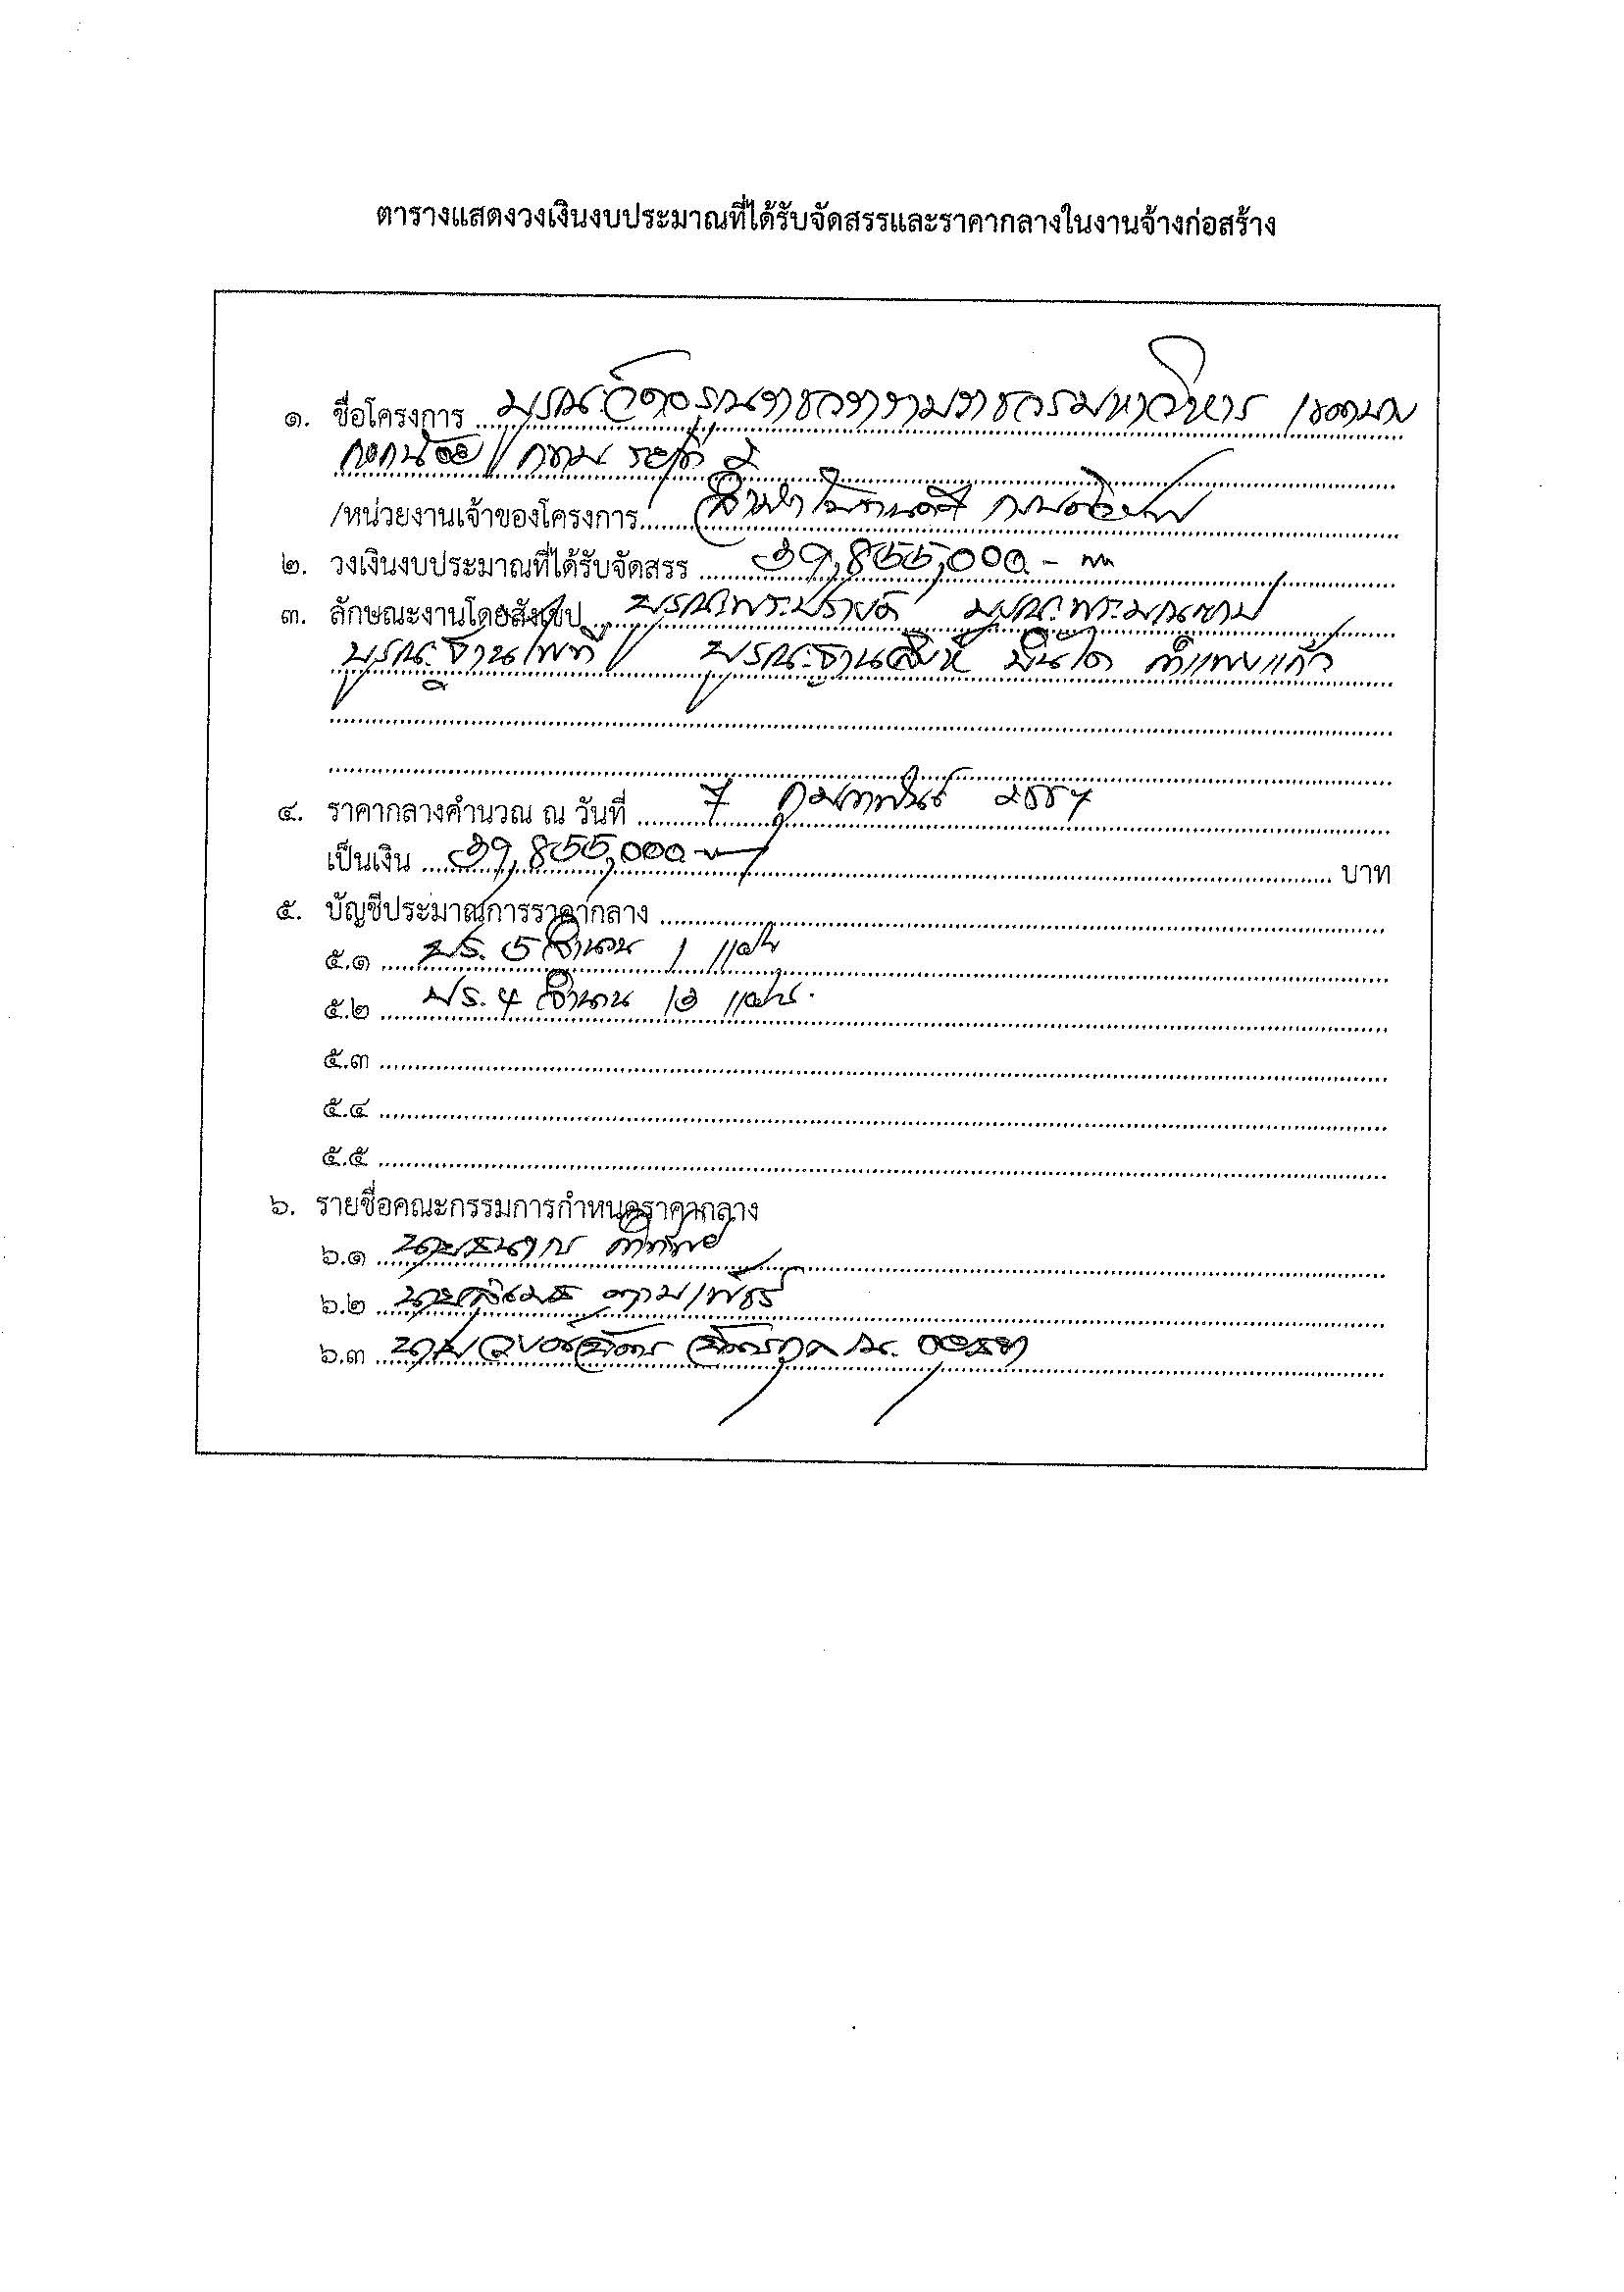 ตารางแสดงวงเงินงบประมาณที่ได้รับจัดสรรและราคากลางในงานจ้างก่อสร้าง
๑. ชื่อโครงการ บูรณะวัดอรุณราชวรารามราชวรมหาวิหาร เขตบาง
กอกน้อย กทม ระยะที่ 2
/หน่วยงานเจ้าของโครงการ
๒. วงเงินงบประมาณที่ได้รับจัดสรร 39,855,000.-
๓. ลักษณะงานโดยสังเขป บูรณะพระปรางค์ บูรณะพระมณฑป
บูรณะฐานไพที บูรณะฐานสิงห์ บันได กำแพงแก้ว
๔. ราคากลางคำนวณ ณ วันที่ 7 กุมภาพันธ์ 2557
เป็นเงิน 39,855,000 บาท
๕. บัญชีประมาณการราคากลาง
๕.๑ ปร. 5 จำนวน 1 แผ่น
๕.๒ ปร. 4 จำนวน 13 แผ่น.
๕.๓
๕.๔
๕.๕
๖. รายชื่อคณะกรรมการกำหนดราคากลาง
๖.๑
๖.๒
๖.๓